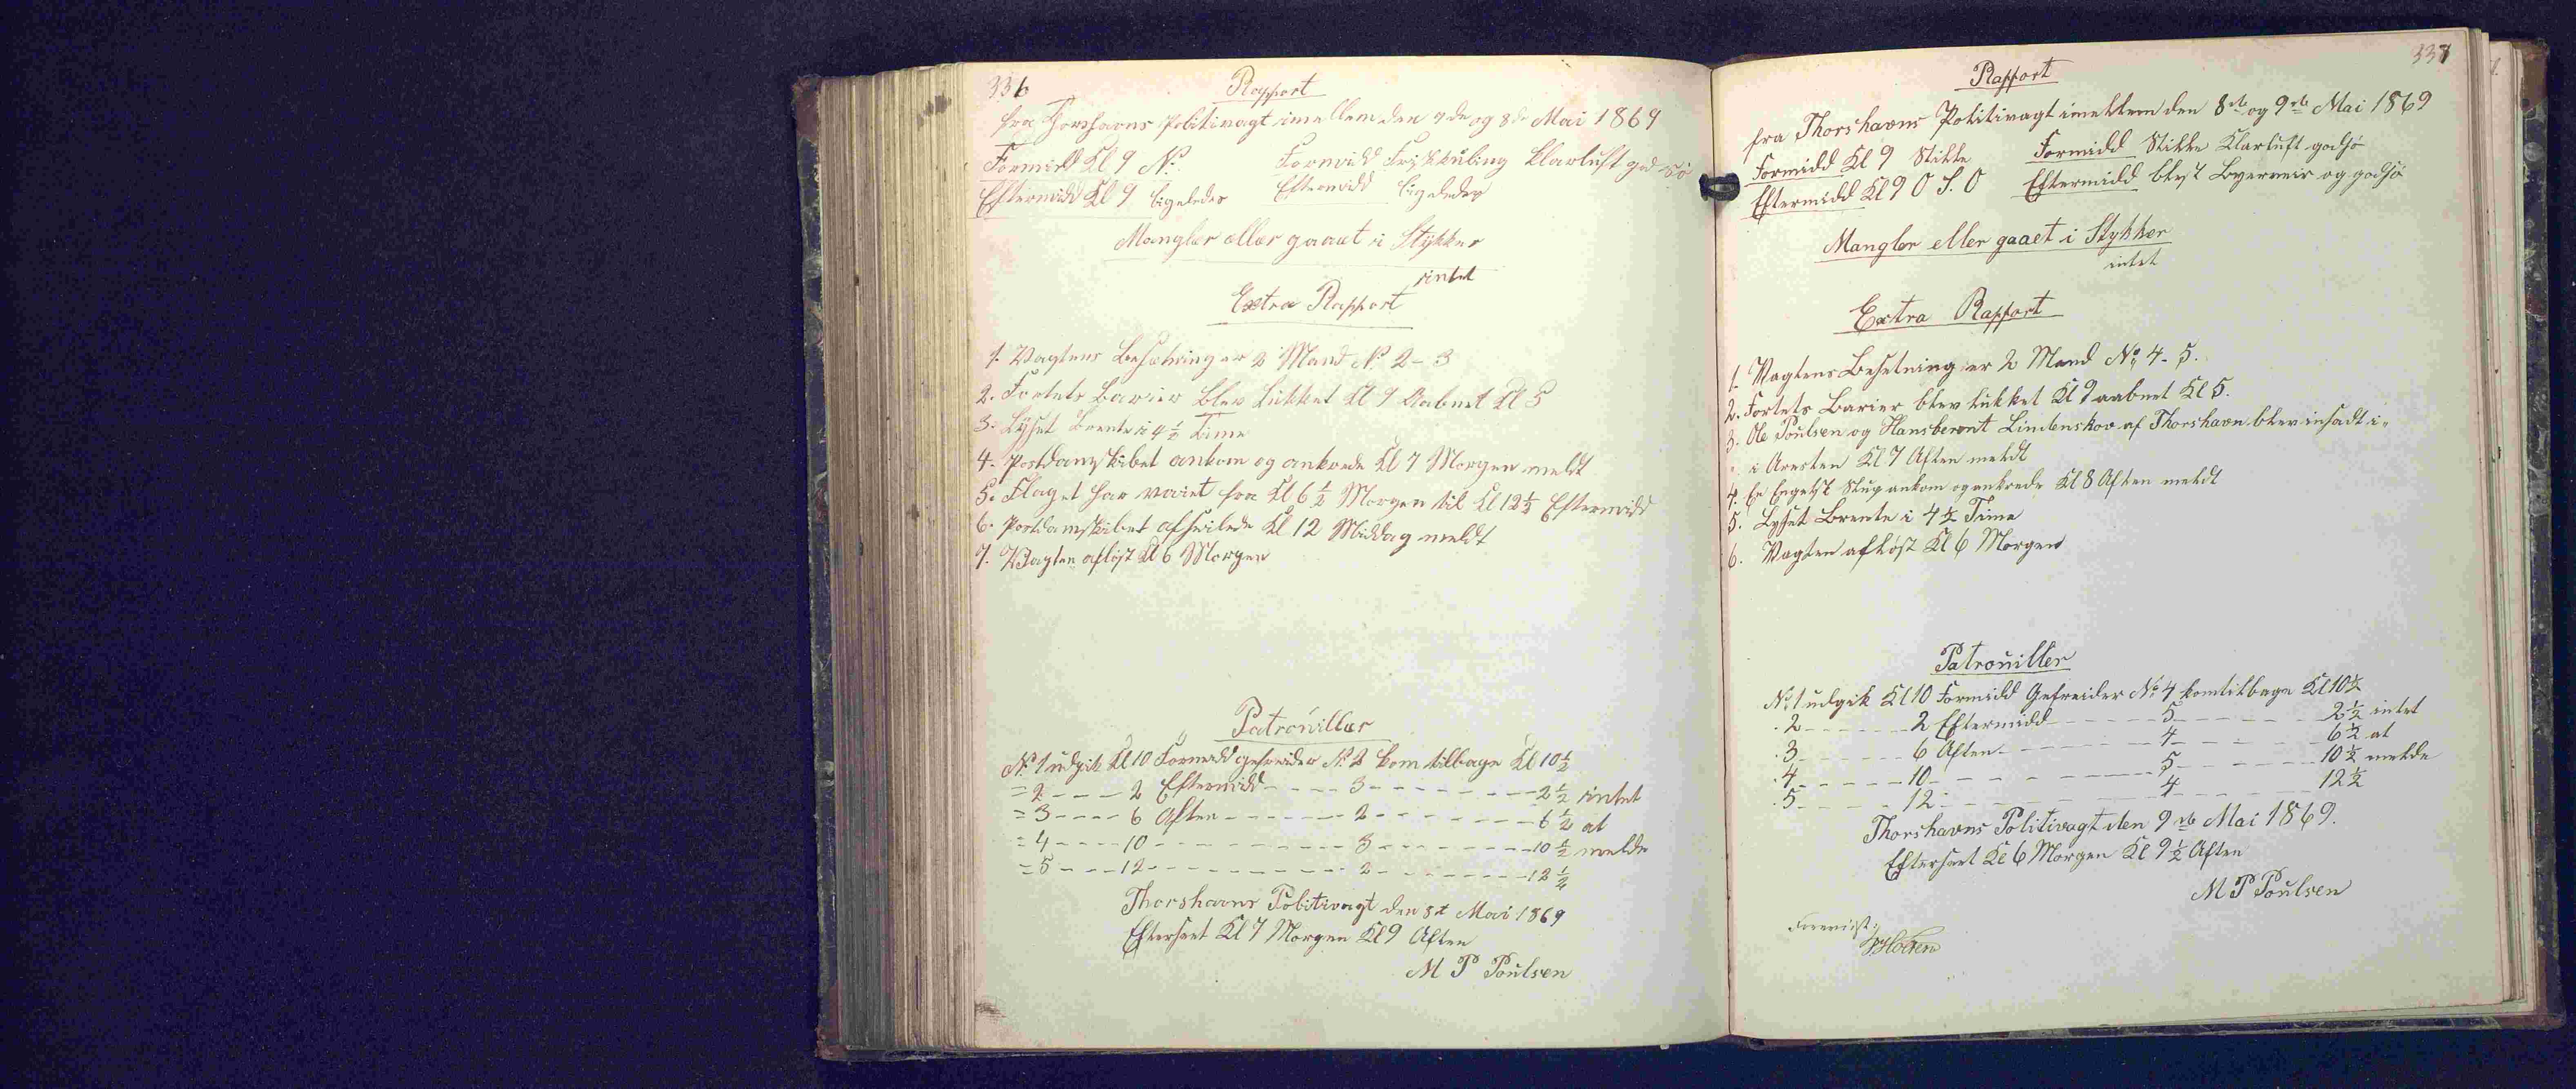 336
Rapport
fra Thorshavns Politivagt imellem den 7de og 8de Mai 1869
Formidd Kl 9 N. Formidd Friskkuling Klarluft god Sö
Eftermidd Kl 9 ligeledes Eftermidd ligeledes
Mangler eller gaaet i Stykker
intet
Extra Rapport
1. Vagtens Besætning er 2 Mand No 2-3
2. Fortets Barier blev lukket Kl 9 Aabnet Kl 5
3. Lyset Brente i 4 1/2 Time
4. Postdampskibet ankom og ankrede Kl 7 Morgen meldt
5. Flaget har vaiet fra Kl 6 1/2 Morgen til Kl 12 1/2 Eftermidd
6. Postdamskibet afseilede Kl 12 Middag meldt
7. Vagten aflöst Kl 6 Morgen
Patrouiller
No 1 udgik Kl 10 Formidd gefreider No 2 kom tilbage Kl 10 1/2
= 2 - - - - 2 Eftermidd - - - - 3 - - - - - - - 2 1/2 intet
= 3 - - - - 6 Aften - - - - - - 2 - - - - - - - 6 1/2 at
= 4 - - - - 10 - - - - - - - - - 3 - - - - - - - 10 1/2 melde
= 5 - - - 12 - - - - - - - - - 2 - - - - - - - 12 1/2
Thorshavns Politivagt den 8d Mai 1869
Efterseet Kl 7 Morgen Kl 9 Aften
M P Poulsen
337
Rapport
fra Thorshavns Politivagt imellem den 8de og 9de Mai 1869
Formidd Kl 9 Stille Formidd Stille Klarluft godsö
Eftermidd Kl 9 O S. O Eftermidd blest Byerveir og godsö
Mangler eller gaaet i Stykker
intet
Extra Rapport
1. Vagtens Besetning er 2 Mand No 4-5.
2. Fortets Barier blev lukket Kl 9 aabnet Kl 5.
3. Ole Poulsen og Hansberent Lindenskov af Thorshavn blev insadt i
" i Aresten Kl 7 Aften meldt
4. En Engelsk Slup ankom og ankrede Kl 8 Aften meldt
5. Lyset Brente i 4 1/2 Time
6. Vagten aflöst Kl 6 Morgen
Patrouiller
No 1 udgik Kl 10 Formidd Gefreider No 4 kom tilbage Kl 10 1/2
. 2 - - - - - 2 Eftermidd - - - - - 5 - - - - - - 2 1/2 intet
. 3 - - - - - 6 Aften - - - - - - 4 - - - - - - 6 1/2 at
. 4 - - - - - 10 - - - - - - - - 5 - - - - - - 10 1/2 melde
. 5 - - - - 12 - - - - - - - - 4 - - - - - - 12 1/2
Thorshavns Politivagt den 9de Mai 1869.
Efterseet Kl 6 Morgen Kl 9 1/2 Aften
M P Poulsen
Forevist: